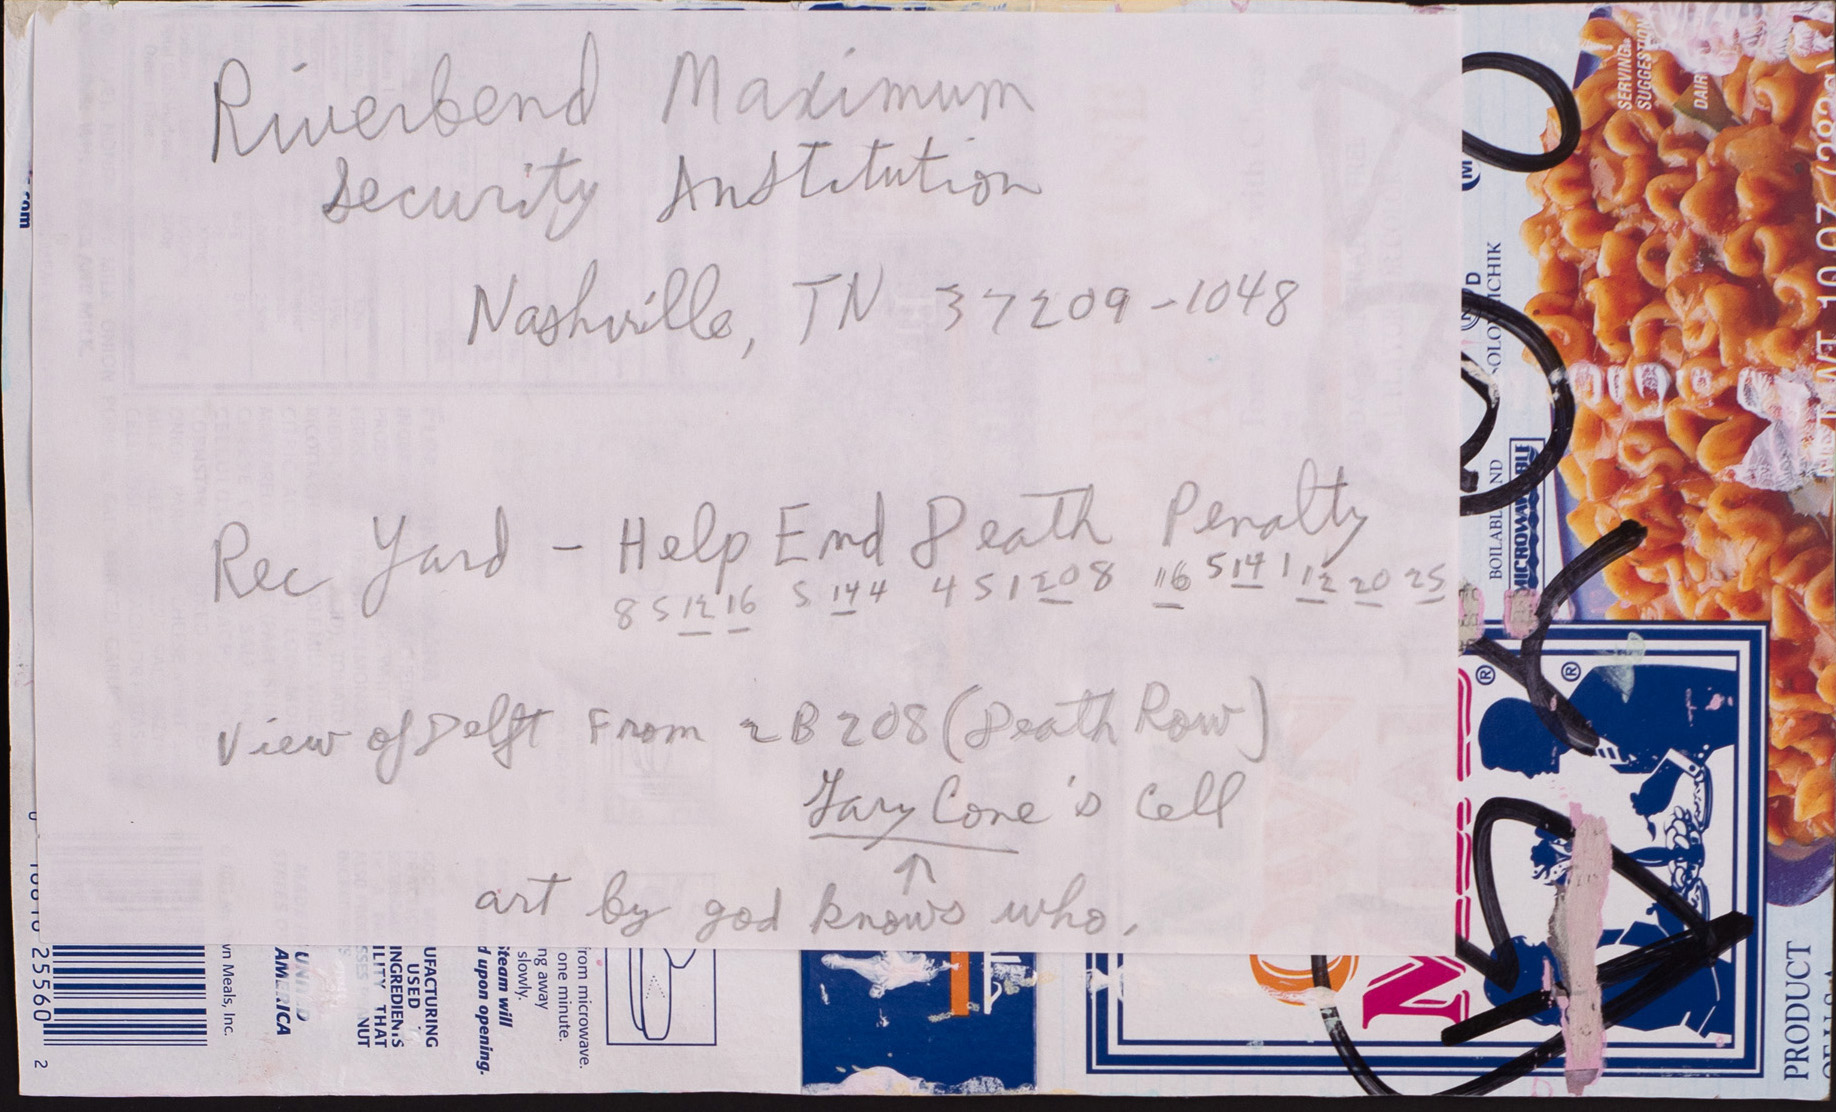 Riverbend Maximum
Security Institution
Nashville, TN 37209-1048
Rec Yard - Help End Death Penalty
8 5 12 16 5 14 4 4 5 1 20 8 16 5 14 1 12 20 25
View of Delft From 2B208 (Death Row)
Gary Cone's Cell
↑
art by god knows who.
SERVING
SUGGESTION
DAIR
NET WT 10 OZ (283g)
BOILABL
ND
MICROWAVABLE
®
®
PRODUCT
.com
25560
2
wn Meals, Inc.
AMERICA
UFACTURING
USED
INGREDIENTS
ILITY THAT
NUT
d upon opening.
Steam will
slowly.
ng away
one minute.
from microwave.